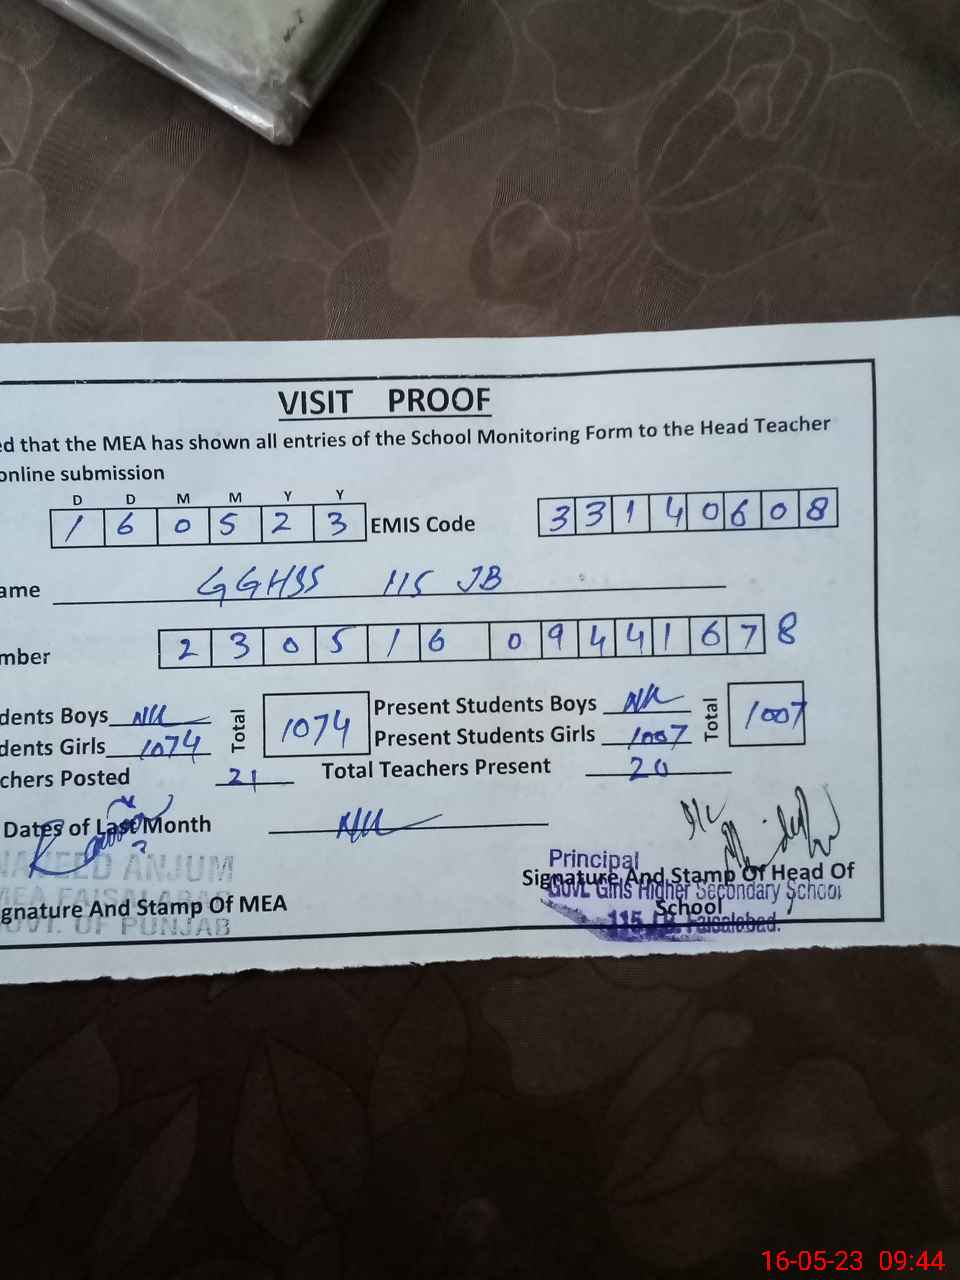 VISIT PROOF
ed that the MEA has shown all entries of the School Monitoring Form to the Head Teacher
online submission
D D M M Y Y
1 6 0 5 2 3 EMIS Code 3 3 1 4 0 6 0 8
ame GGHSS 115 JB
mber 2 3 0 5 1 6 0 9 4 4 1 6 7 8
dents Boys Nil Total 1074 Present Students Boys Nil Total 1007
dents Girls 1074 Present Students Girls 1007
chers Posted 21 Total Teachers Present 20
Dates of Last Month Nil
NAVEED ANJUM
MEA FAISALABAD
GOVT. OF PUNJAB
gnature And Stamp Of MEA
Principal
Signature And Stamp Of Head Of
Govt. Girls Higher Secondary School
School
115 J.B. Faisalabad.
16-05-23 09:44